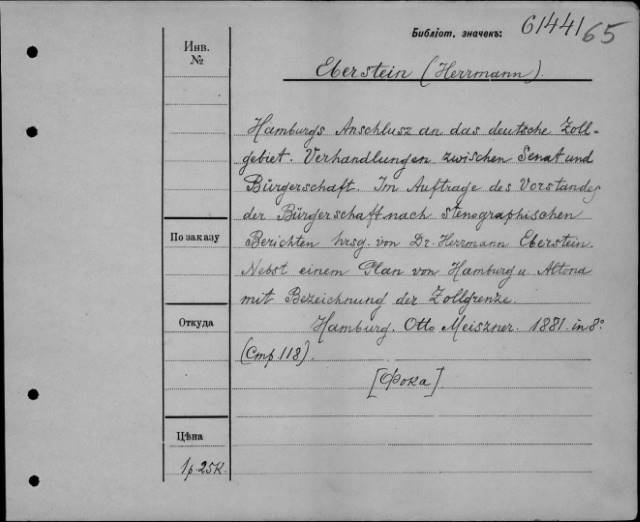 Библіот. значекъ: 61441 65
Инв. №
Eberstein (Herrmann).
Hamburgs Anschlusz an das deutsche Zoll-
gebiet. Verhandlungen zwischen Senat und
Bürgerschaft. Im Auftrage des Vorstandes
der Bürgerschaft nach stenographischen
По заказу
Berichten hrsg. von Dr. Herrmann Eberstein.
Nebst einem Plan von Hamburg u Altona
mit Bezeichnung der Zollgrenze.
Откуда
Hamburg. Otto Meiszner. 1881. in 8°
(Стр. 118).
[Фока]
Цѣна
1р 25к.